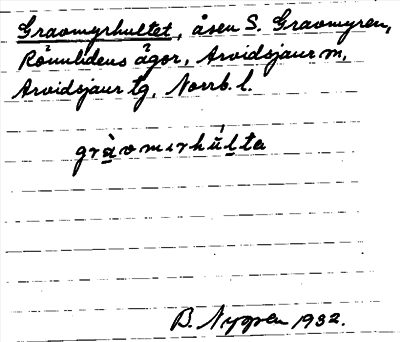 Gravmyrhultet, åsen S. Gravmyren,
Rönnlidens ägor, Arvidsjaur m,
Arvidsjaur tg, Norrb. l.
gràvmɩrhúlta
B. Nygren 1932.